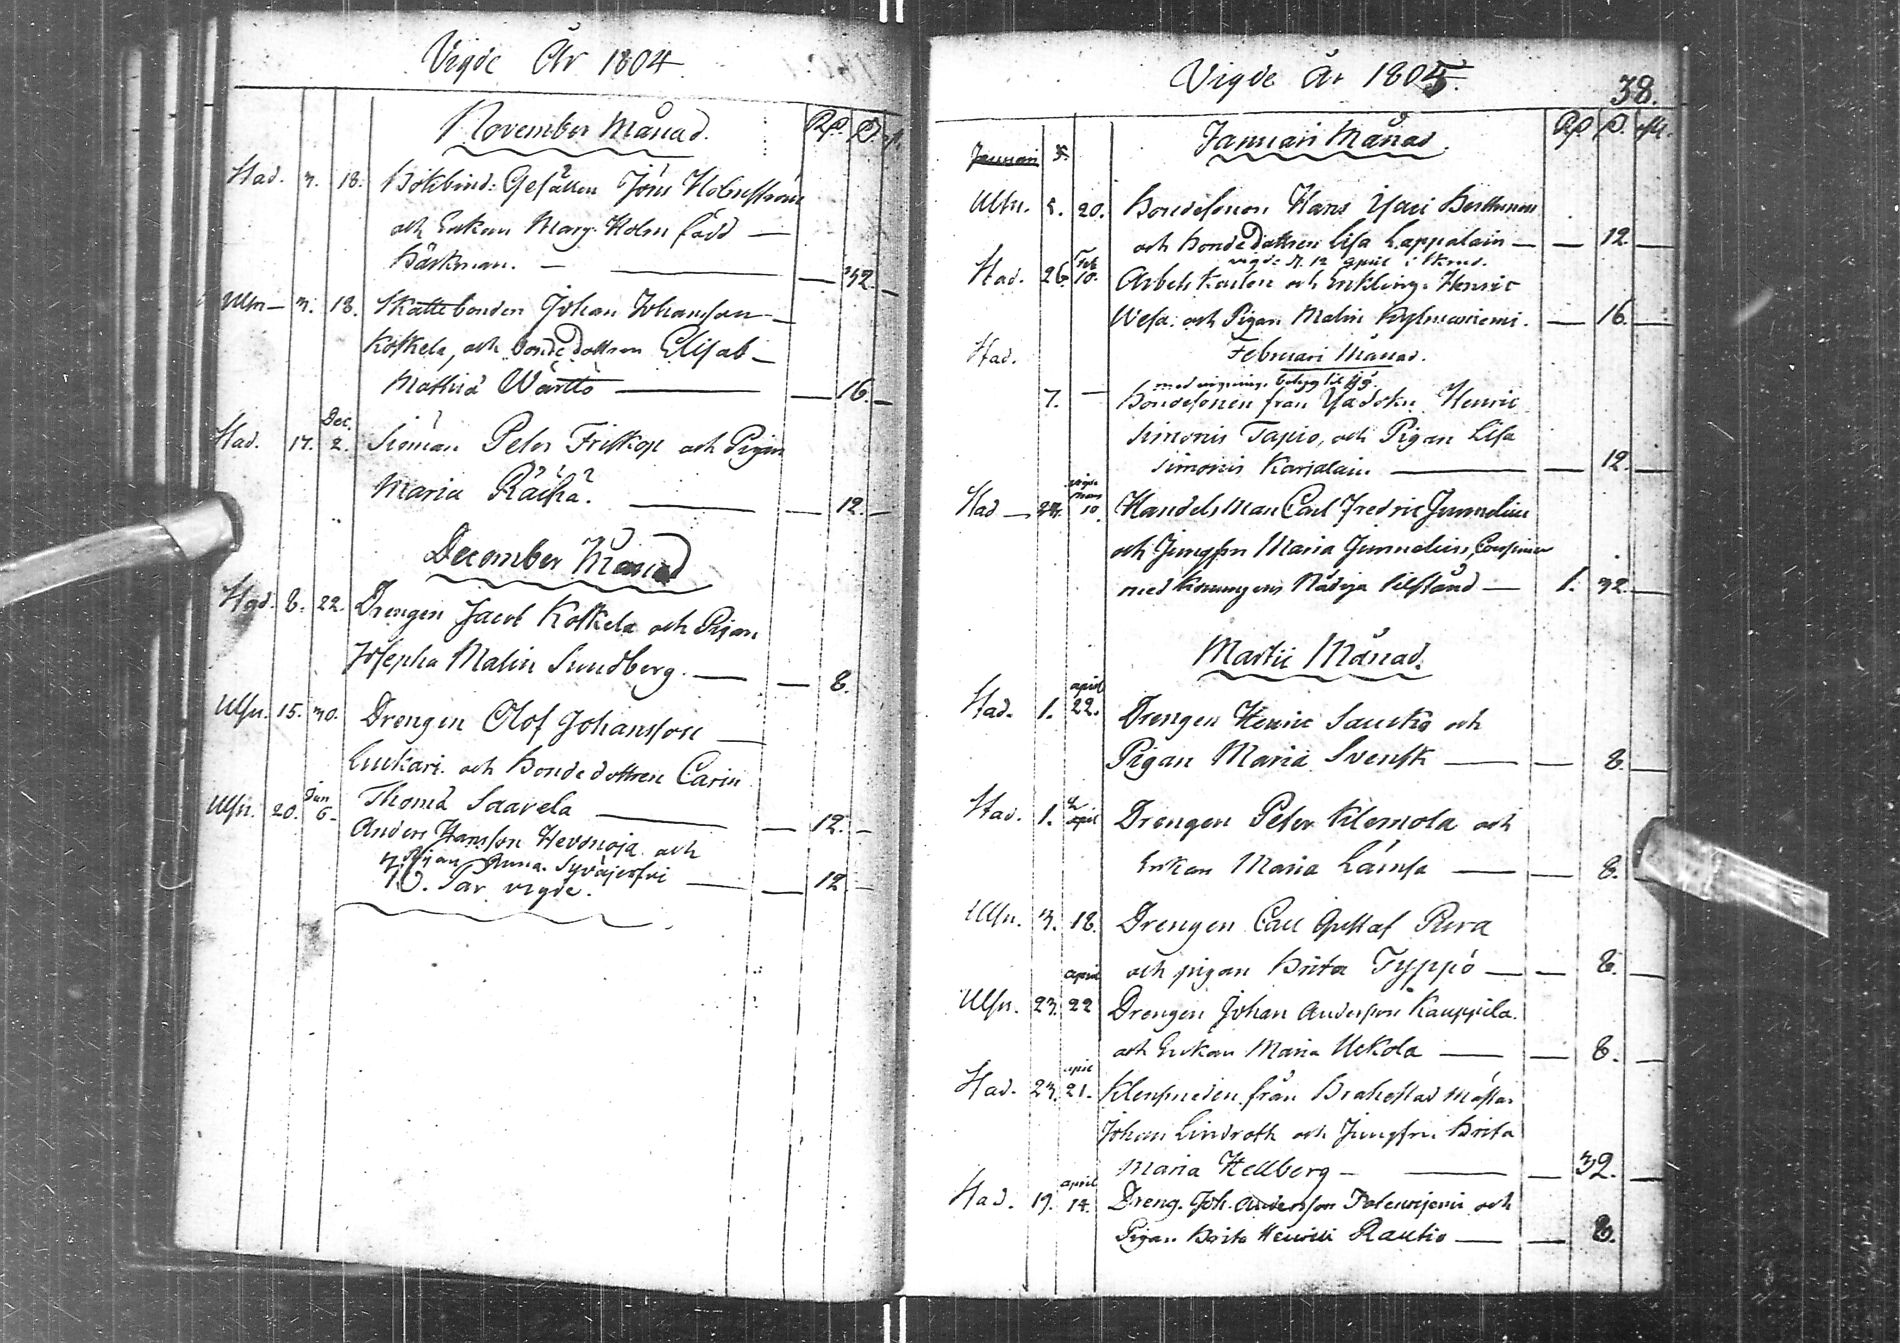 Vigde År 1804
November Månad. Rd. s.
Stad. 3. 18. Bokbind: Gesällen Jöns Holmström
och Enkan Marg. Holm född —
Bäckman. — — 32. —
Ulfn — 3. 18. Skattebonden Johan Johansson —
Koskela, och bondedottren Elisab —
Mathsd Wärttö — — 16. —
Dec.
Stad. 17. 2. Siöman Peter Friskop och Pigan
Maria Räihä. — — 12. —
December Månad
Stad. 8. 22. Drengen Jacob Koskela och Pigan
Josepha Malin Sundberg. — — 8.
Ulfn. 15. 30. Drengen Olof Johansson —
och Bondedottren Carin
Thomd Saarela — — 12. —
Jan
Ulfn. 20. 6. Anders Hansson Hevonoja och
Pigan Anna Syväjerfvi — — 12 —
70. Par vigde.
Vigde År 1805.
38.
Januari Månad. Rd s.
Januari 5.
Ulfn. 5. 20. Bondesonen Hans Yari
och Bondedottren Lisa Lappalain — — 12 —
vigde d. 12 april i
Feb
Stad. 26 10. Arbets Karlen och Enkling. Henric
Wesa: och Pigan Malin Kylmäniemi. — 16. —
Stad. Februari Månad.
7. — Bondesonen från Henric
Simonis Tapio, och Pigan Lisa
Simonis Karjalain. — — 12. —
vigde
Mars
Stad — 24. 10. Handelsman Carl Fredric Junnelius
och Jungfru Maria Junnelius, Cousiner
med Konungens Nådiga tilstånd — 1. 32. —
Martii Månad.
april
Stad. 1. 22. Drengen Henric Saucko och
Pigan Maria Svensk — — 8. —
april
Stad. 1. Drengen Peter Klemola och
Enkan Maria Lämsä — — 8. —
Ulfn. 3. 18. Drengen Carl Gustaf Pura
och pigan Brita Typpö — — 8. —
april
Ulfn. 23. 22 Drengen Johan Andersson Kauppila.
och Enkan Maria Uckola — — 8. —
april
Stad. 23. 21. Klensmeden från Brahestad Mästar
Johan Lindroth och Jungfru Brita
Maria Hellberg — — 32. —
april
Stad. 19. 14. Dreng. Joh. Andersson och
Pigan Brita Henrici Rautio — — 8.